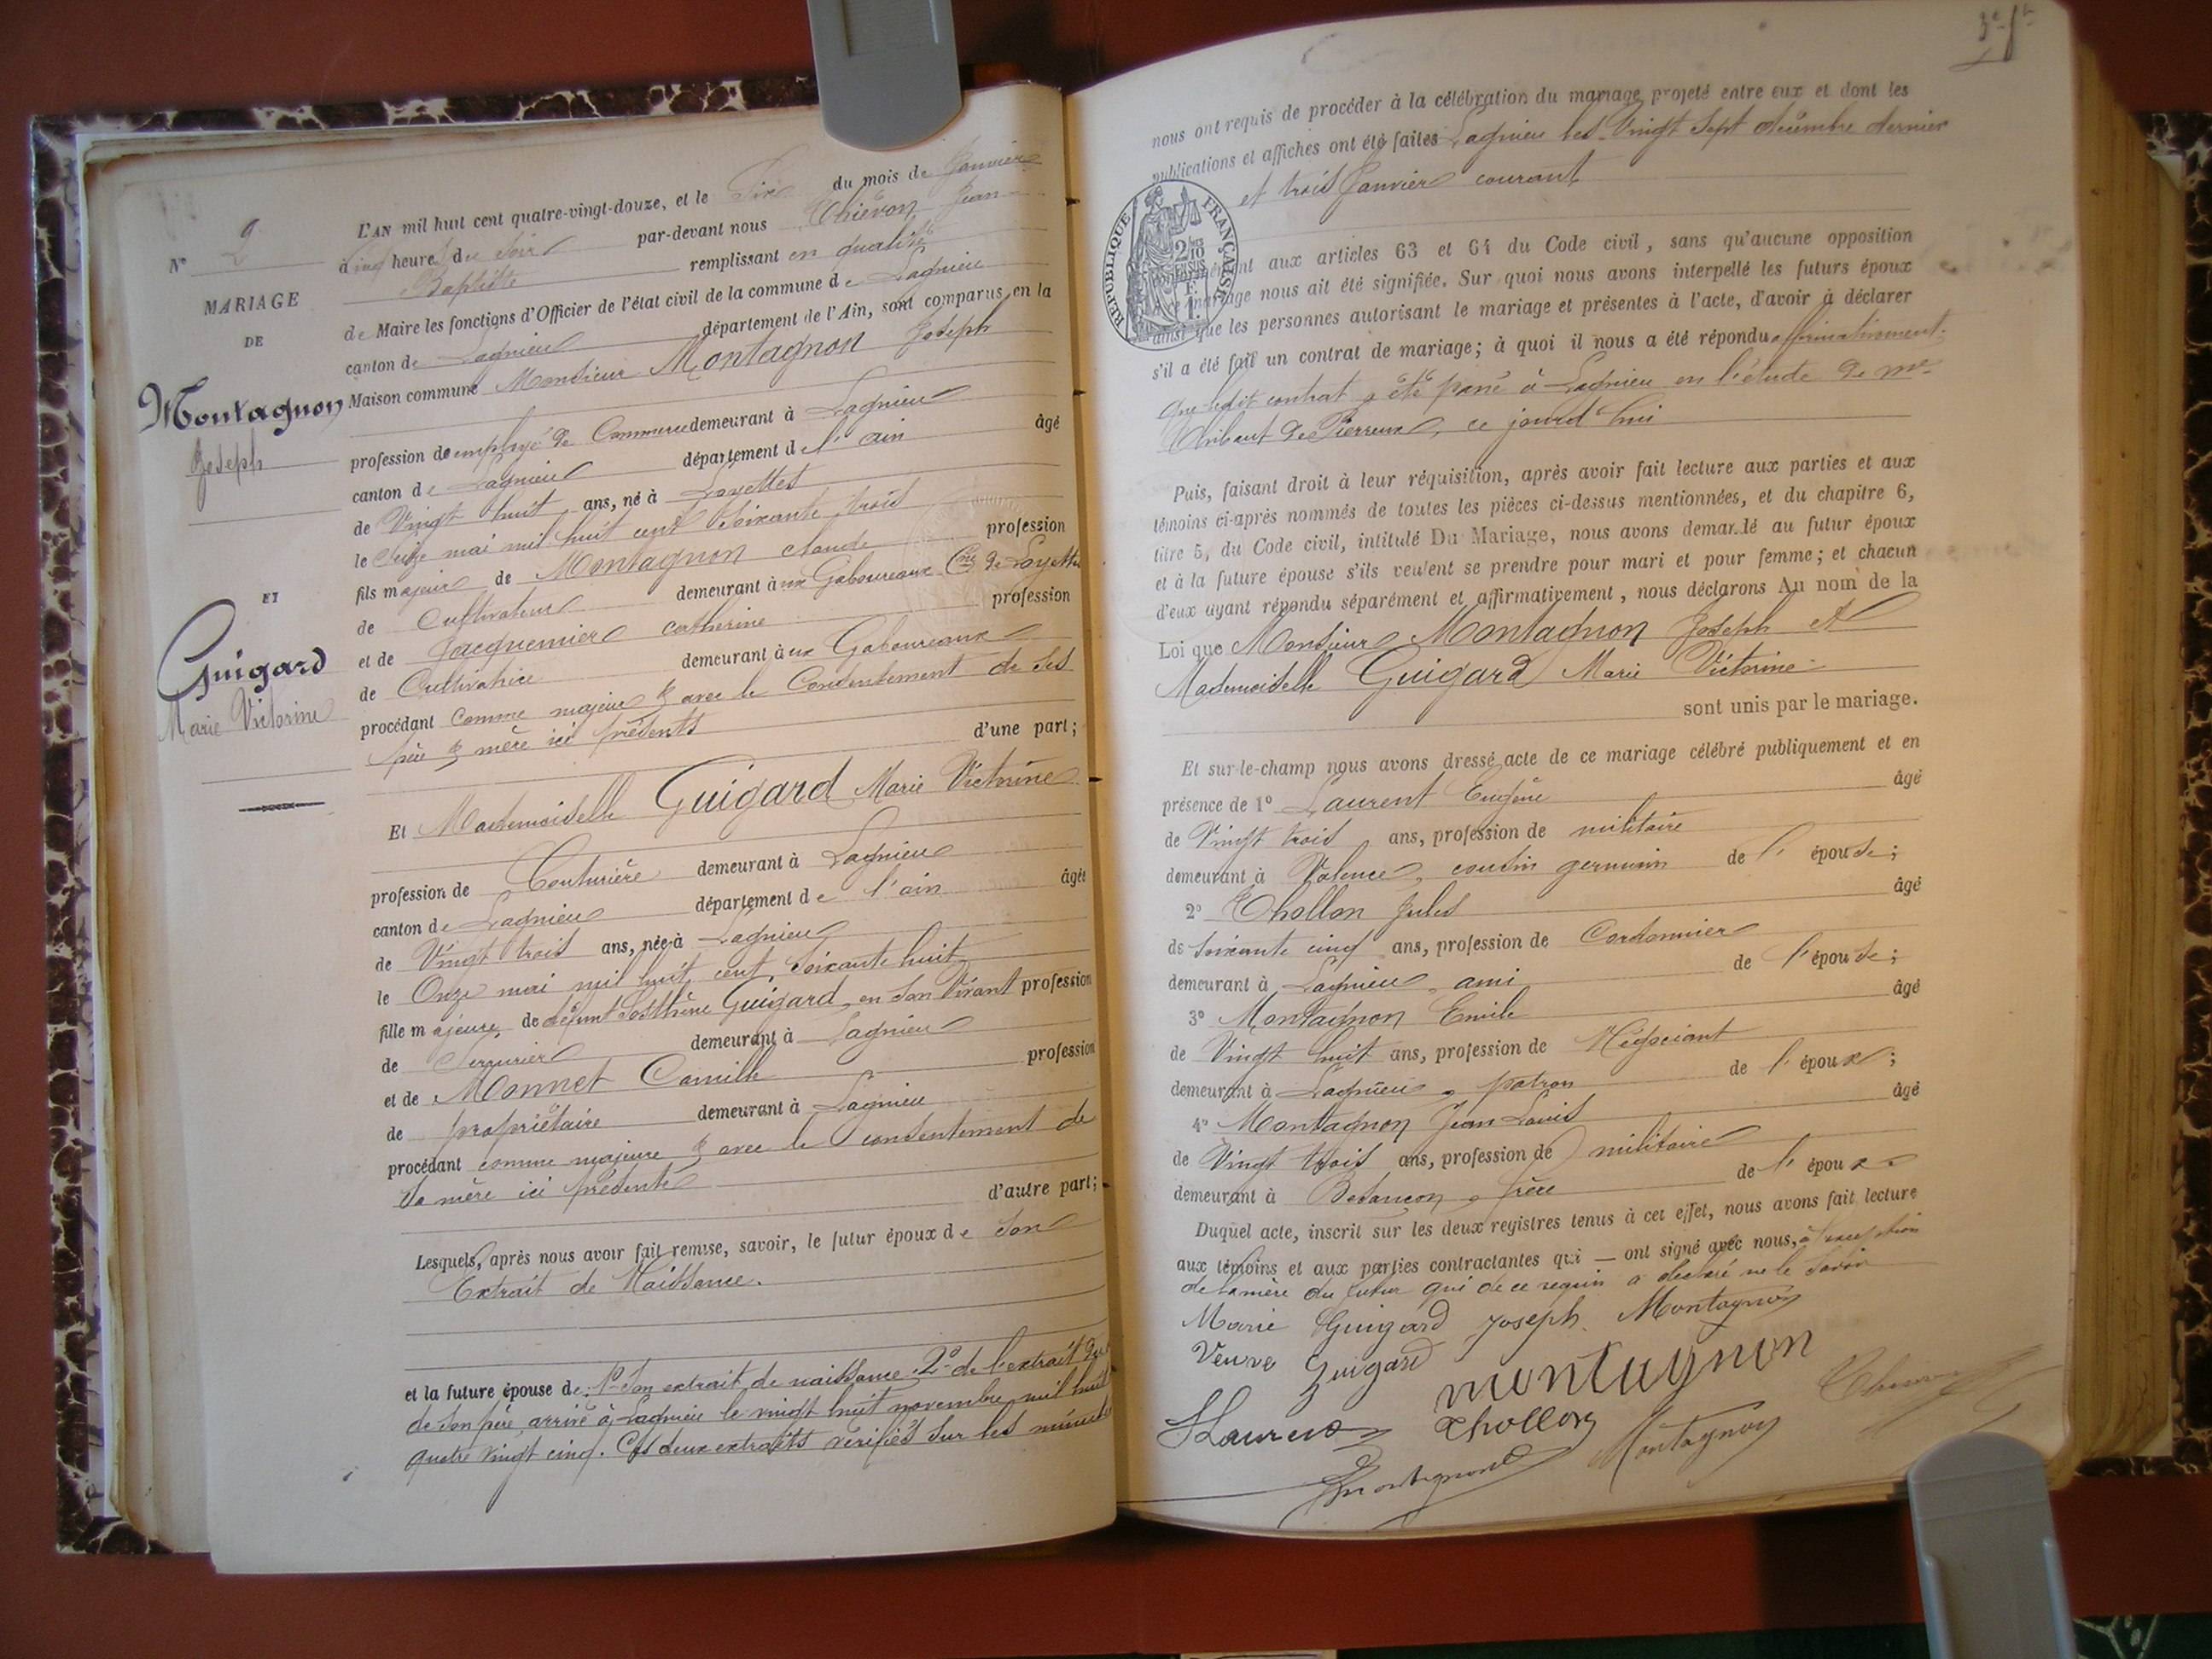 N° 2
MARIAGE
DE
Montagnon
Joseph
ET
Guigard
Marie Victorine
L'AN mil huit cent quatre-vingt-douze, et le Six du mois de Janvier
à cinq heures du soir par-devant nous Thiévon Jean
Baptiste remplissant en qualité
de Maire les fonctions d'Officier de l'état civil de la commune de Lagnieu
canton de Lagnieu département de l'Ain, sont comparus en la
Maison commune Monsieur Montagnon Joseph
profession de employé de Commerce demeurant à Lagnieu
canton de Lagnieu département de l'ain âgé
de Vingt huit ans, né à Loyettes
le Seize mai mil huit cent soixante trois
fils majeur de Montagnon claude profession
de Cultivateur demeurant aux Gaboureaux Cne de Loyettes
et de Jacquemier catherine profession
de Cultivatrice demeurant aux Gaboureaux
procédant comme majeur & avec le Consentement de ses
père & mère ici présents d'une part;
Et Mademoiselle Guigard Marie Victorine
profession de Couturière demeurant à Lagnieu
canton de Lagnieu département de l'ain âgée
de Vingt trois ans, née à Lagnieu
le Onze mai mil huit cent soixante huit
fille majeure de défunt Sosthène Guigard, en son Vivant profession
de Serrurier demeurant à Lagnieu
et de Monnet Camille profession
de propriétaire demeurant à Lagnieu
procédant comme majeure & avec le consentement de
sa mère ici présente d'autre part;
Lesquels, après nous avoir fait remise, savoir, le futur époux de son
Extrait de Naissance.
et la future épouse de: 1° Son extrait de naissance. 2° de l'extrait du
de son père arrivé à Lagnieu le vingt huit novembre mil huit
quatre vingt cinq. Ces deux extraits vérifiés sur les minutes
nous ont requis de procéder à la célébration du mariage projeté entre eux et dont les
publications et affiches ont été faites Lagnieu les Vingt Sept décembre dernier
et trois Janvier courant
RÉPUBLIQUE FRANÇAISE
2/10 EN SUS
1 F.
aux articles 63 et 64 du Code civil, sans qu'aucune opposition
mariage nous ait été signifiée. Sur quoi nous avons interpellé les futurs époux
ainsi que les personnes autorisant le mariage et présentes à l'acte, d'avoir à déclarer
s'il a été fait un contrat de mariage; à quoi il nous a été répondu affirmativement.
que ledit contrat a été passé à Lagnieu en l'étude de Me
Thibaut de Pierreux, ce jourd'hui
Puis, faisant droit à leur réquisition, après avoir fait lecture aux parties et aux
témoins ci-après nommés de toutes les pièces ci-dessus mentionnées, et du chapitre 6,
titre 5, du Code civil, intitulé Du Mariage, nous avons demandé au futur époux
et à la future épouse s'ils veulent se prendre pour mari et pour femme; et chacun
d'eux ayant répondu séparément et affirmativement, nous déclarons Au nom de la
Loi que Monsieur Montagnon Joseph et
Mademoiselle Guigard Marie Victorine
sont unis par le mariage.
Et sur-le-champ nous avons dressé acte de ce mariage célébré publiquement et en
présence de 1° Laurent Eugène âgé
de Vingt trois ans, profession de militaire
demeurant à Valence, cousin germain de l'épouse;
2° Thollon Jules âgé
de soixante cinq ans, profession de Cordonnier
demeurant à Lagnieu, ami de l'épouse;
3° Montagnon Emile âgé
de Vingt huit ans, profession de Négociant
demeurant à Lagnieu, patron de l'époux;
4° Montagnon Jean Louis âgé
de Vingt trois ans, profession de militaire
demeurant à Besançon, frère de l'époux.
Duquel acte, inscrit sur les deux registres tenus à cet effet, nous avons fait lecture
aux témoins et aux parties contractantes qui — ont signé avec nous, à l'exception
de la mère du futur qui de ce requis a déclaré ne le savoir
Marie Guigard Joseph Montagnon
Veuve Guigard montagnon
Laurent Thollon
Montagnon Montagnon